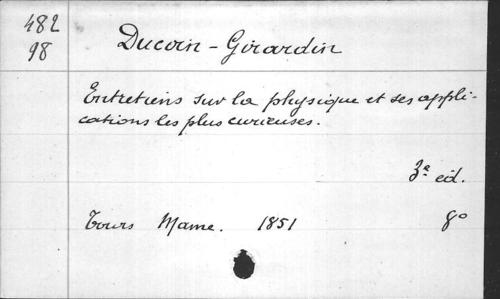 482
98
Ducoin-Girardin
Entretiens sur la physique et ses appli-
cations les plus curieuses.
3e ed.
Tours Mame. 1851 8o